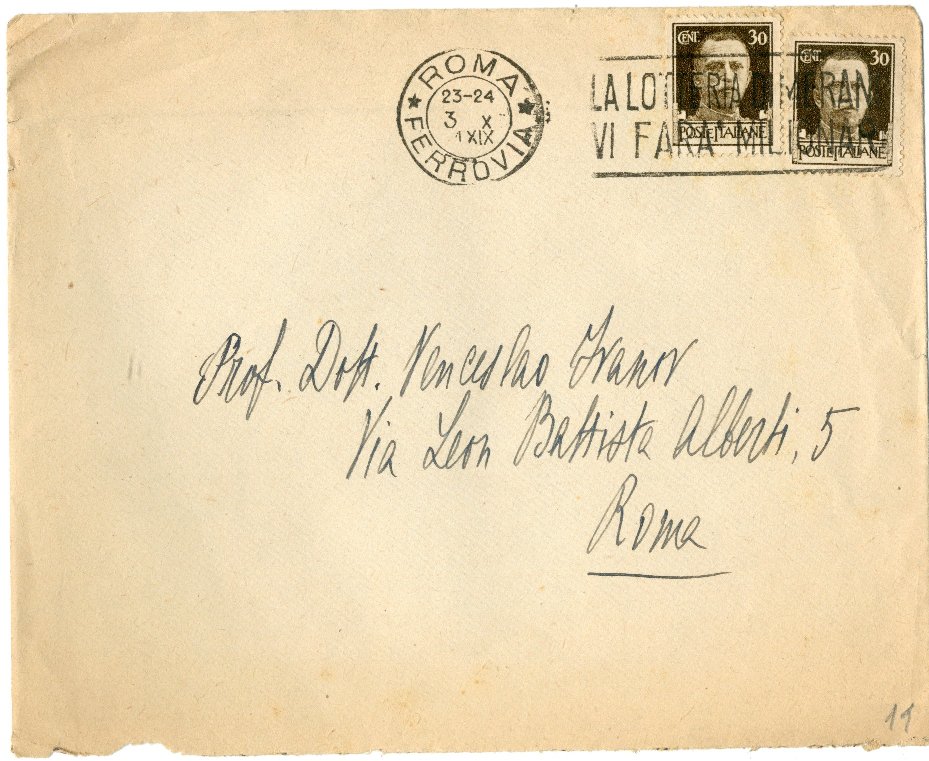 ROMA
23-24
3 X
XIX
FERROVIA
CENT. 30
POSTE ITALIANE
CENT. 30
POSTE ITALIANE
LA LOTTERIA DI MERAN
VI FARÀ MILIONARI
Prof. Dott. Venceslao Ivanov
Via Leon Battista Alberti, 5
Roma
11